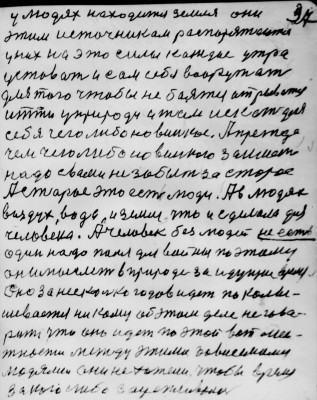 у людях находится земля они
этим источникам распоряжаются
у них на это силы каждое утро
вставать и сам себя вооружать
для того чтобы не бояться
итти у природу и там искать для
себя чего либо новинкое. А прежде
чем чего либо новинкого занимать
надо с вами не забыть за старое
А старое это есть люди. А в людях
воздух вода и земля что и сделала для
человека. А человек без людей не есть
один надо поля для
он и мыслит в природе за идущую
Оно за несколько годов идет по колы-
шивается никому об этом деле не гово-
рить что оно идет по этой вот мес-
тности между этими зависимыми
людями они не хотели чтобы время
за кого либо зацепилося